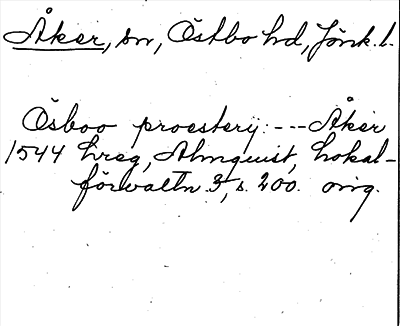 Åker, sn, Östbo hd, Jönk. l.
Ösboo proesterij: --- Åker
1544 hreg, Almquist, Lokal-
förvaltn 3, s. 200. orig.